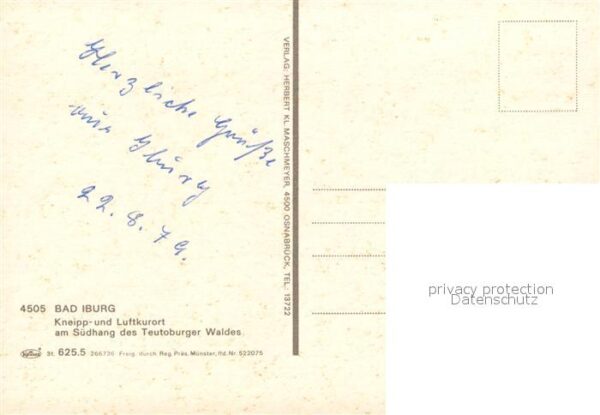 Herzliche Grüße
aus Iburg
22.8.79.
4505 BAD IBURG
Kneipp-und Luftkurort
am Südhang des Teutoburger Waldes
3t. 625.5 266736 Freig. durch Reg. Präs. Münster, lfd. Nr. 522075
VERLAG: HERBERT KL. MASCHMEYER, 4500 OSNABRÜCK, TEL. 13722
privacy protection
Datenschutz